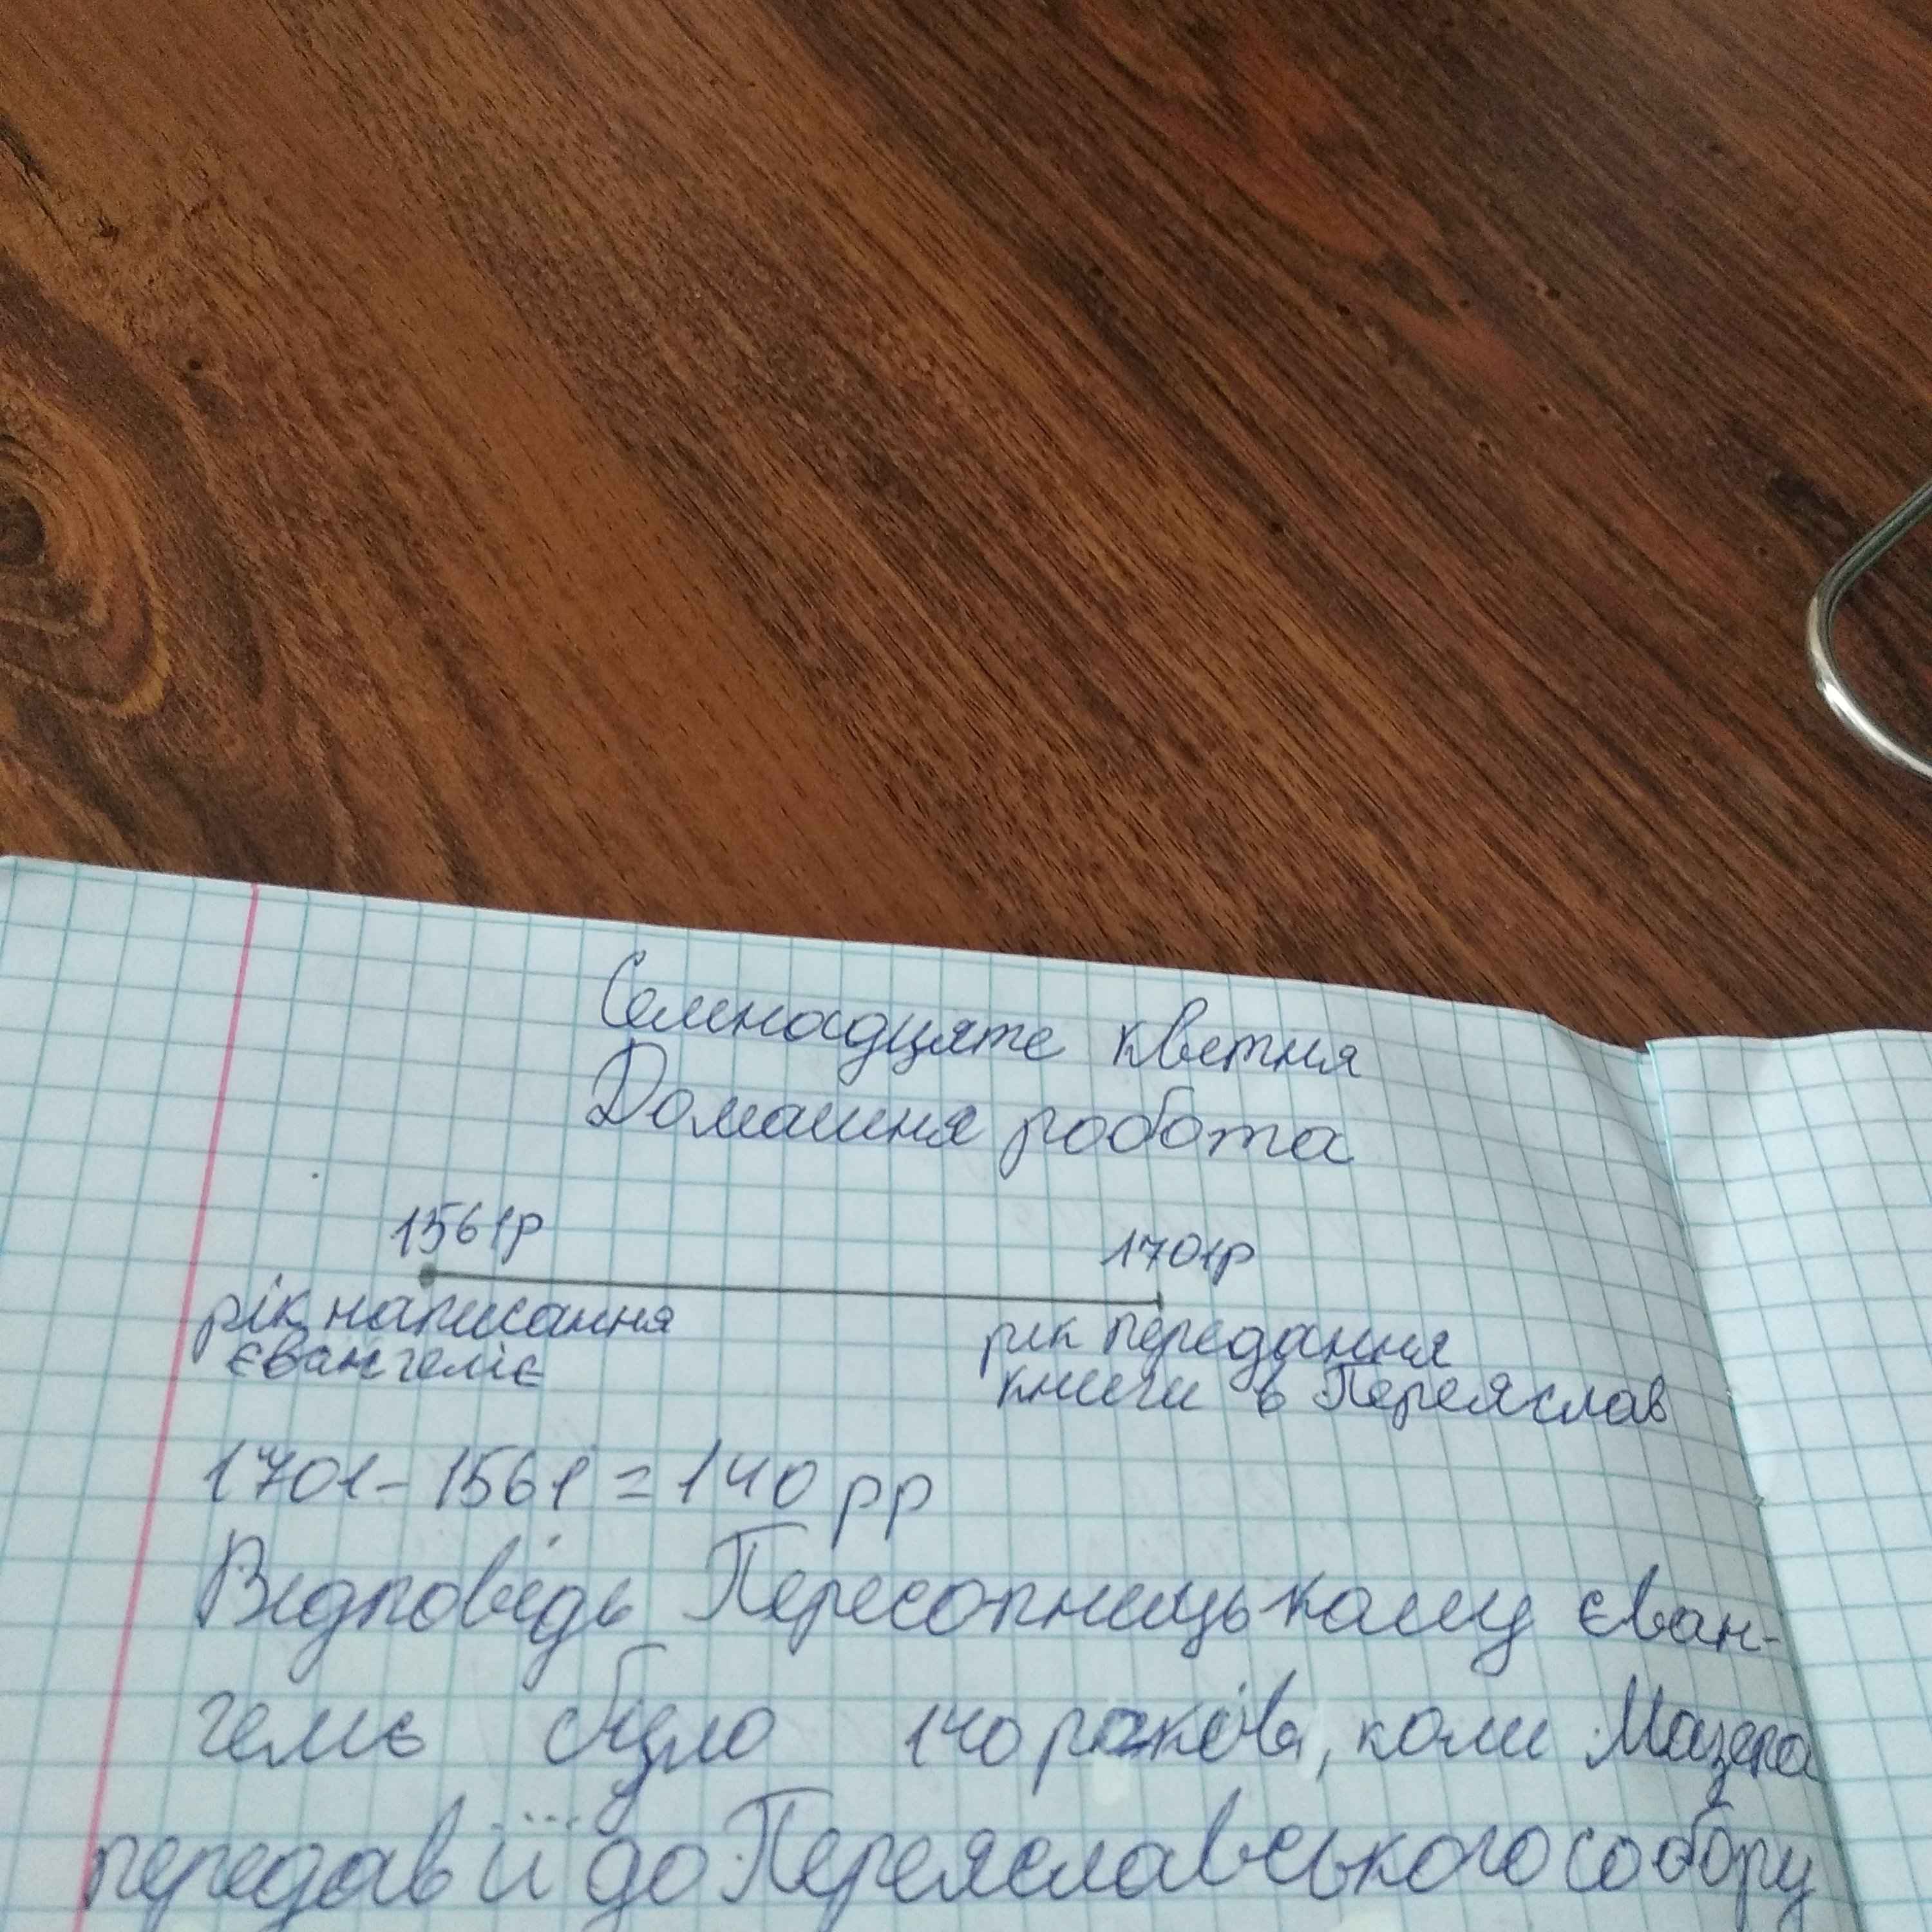 Семнадцяте квітня
Домашня робота
1561р
1701р
рік написання
євангеліє
рік передання
книги в Переяслав
1701-1561=140 рр
Відповідь Пересопницькому єван-
гелію було 140 років, коли Мазепа
передав її до Переяславського собору